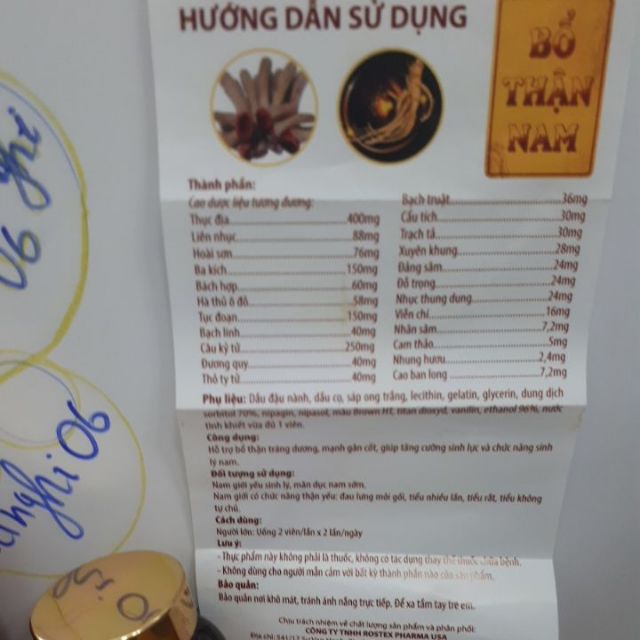 HƯỚNG DẪN SỬ DỤNG
BỔ
THẬN
NAM
Thành phần:
Cao dược liệu tương đương:
Thục địa 400mg
Liên nhục 88mg
Hoài sơn 76mg
Ba kích 150mg
Bách hợp 60mg
Hà thủ ô đỏ 58mg
Tục đoạn 150mg
Bạch linh 40mg
Câu kỷ tử 250mg
Đương quy 40mg
Thỏ ty tử 40mg
Bạch truật 36mg
Cẩu tích 30mg
Trạch tả 30mg
Xuyên khung 28mg
Đảng sâm 24mg
Đỗ trọng 24mg
Nhục thung dung 24mg
Viễn chí 16mg
Nhân sâm 7,2mg
Cam thảo 5mg
Nhung hươu 2,4mg
Cao ban long 7,2mg
Phụ liệu: Dầu đậu nành, dầu cọ, sáp ong trắng, lecithin, gelatin, glycerin, dung dịch
sorbitol 70%, nipagin, nipasol, màu Brown HT, titan dioxyd, vanilin, ethanol 96%, nước
tinh khiết vừa đủ 1 viên.
Công dụng:
Hỗ trợ bổ thận tráng dương, mạnh gân cốt, giúp tăng cường sinh lực và chức năng sinh
lý nam.
Đối tượng sử dụng:
Nam giới yếu sinh lý, mãn dục nam sớm.
Nam giới có chức năng thận yếu: đau lưng mỏi gối, tiểu nhiều lần, tiểu rắt, tiểu không
tự chủ.
Cách dùng:
Người lớn: Uống 2 viên/lần x 2 lần/ngày
Lưu ý:
- Thực phẩm này không phải là thuốc, không có tác dụng thay thế thuốc chữa bệnh.
- Không dùng cho người mẫn cảm với bất kỳ thành phần nào của sản phẩm.
Bảo quản:
Bảo quản nơi khô mát, tránh ánh nắng trực tiếp. Để xa tầm tay trẻ em.
Chịu trách nhiệm về chất lượng sản phẩm và phân phối:
CÔNG TY TNHH ROSTEX PHARMA USA
06
nghi 06